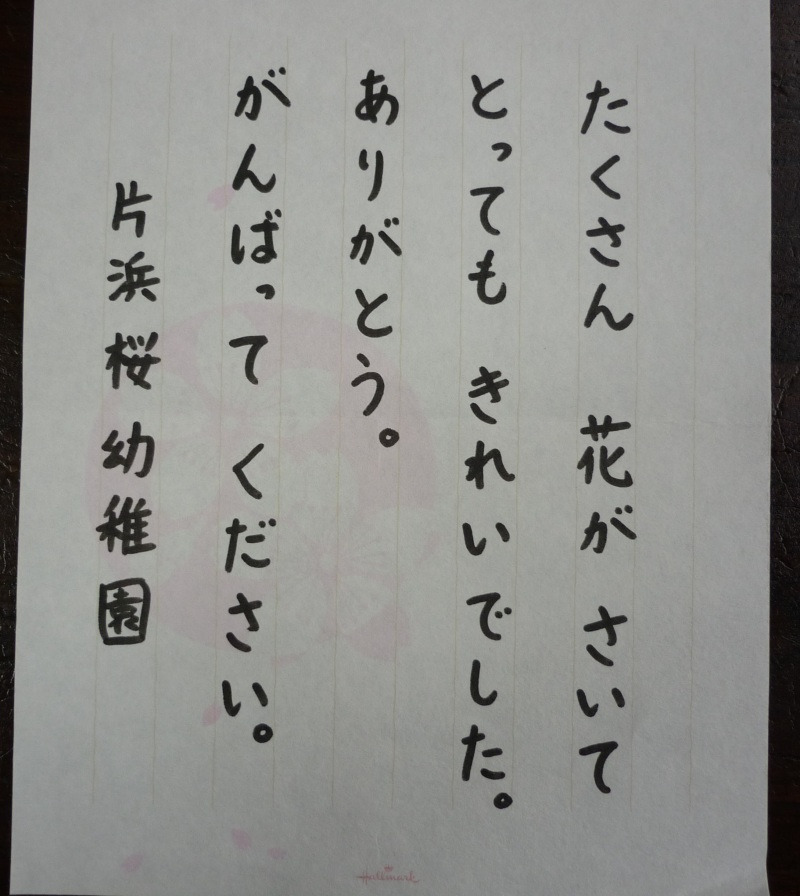 たくさん 花が さいて
とっても きれいでした。
ありがとう。
がんばって ください。
片浜桜幼稚園
Hallmark